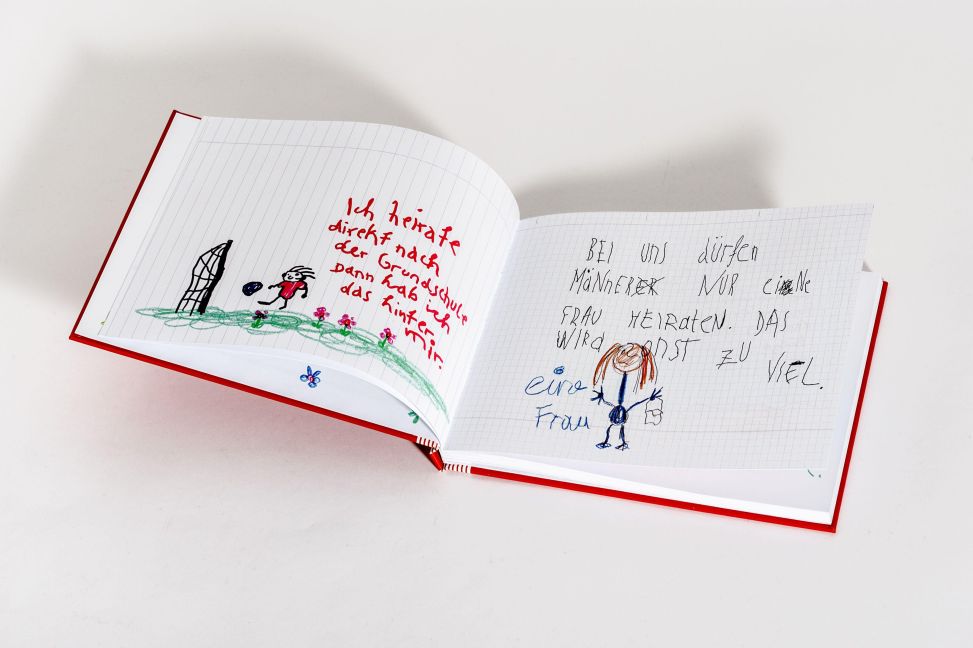 Ich heirate
direkt nach
der Grundschule
Dann hab ich
das hinter
mir.
BEI UNS dürfen
MÄNNER NUR eiNe
FRAU HEIRATEN. DAS
WIRD SONST ZU
VIEL.
eine
Frau